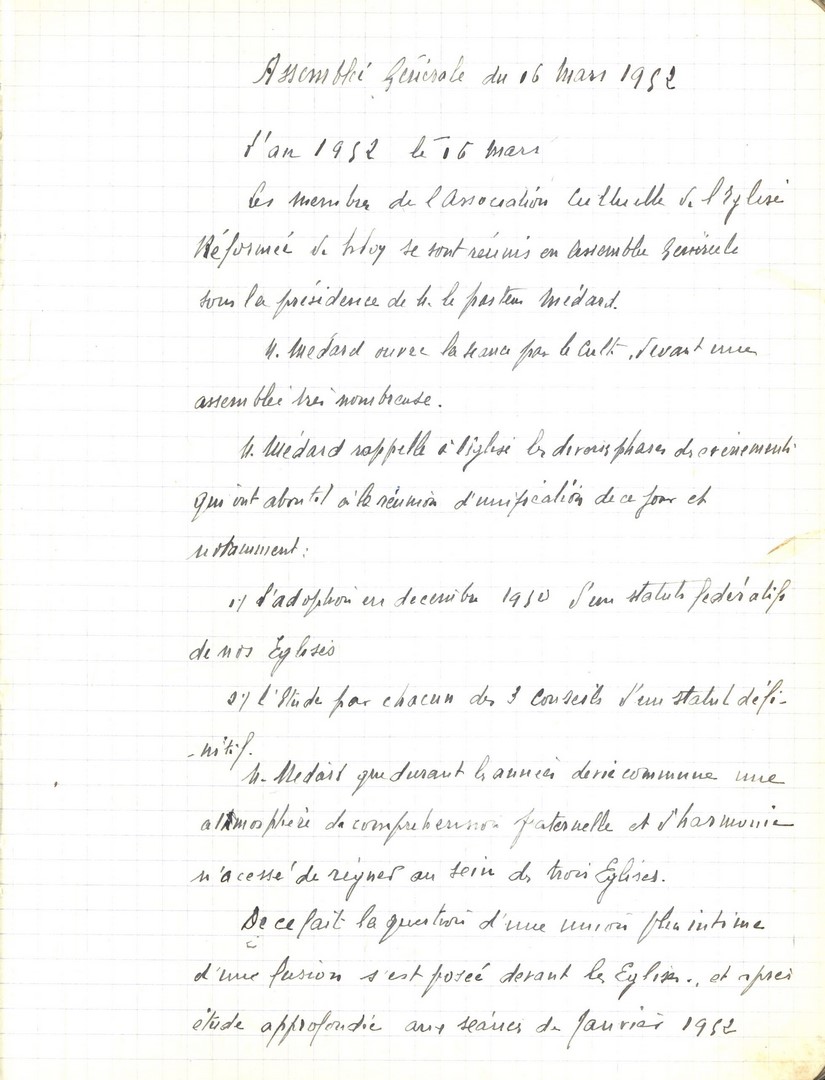 Assemblée Générale du 16 Mars 1952
L'an 1952 le 16 Mars
Les membres de l'Association Cultuelle de l'Eglise
Réformée de se sont réunis en Assemblée Générale
sous la présidence de M. le pasteur Médard.
M. Médard ouvre la séance par le Culte, devant une
assemblée très nombreuse.
M. Médard rappelle à l'Eglise les diverses phases des évènements
qui ont abouti à la réunion d'unification de ce jour et
notamment :
1°) L'adoption en décembre 1950 d'un statuts fédératifs
de nos Eglises
2°) l'Etude par chacun des 3 Conseils d'un statut défi-
-nitif.
M. Médard que durant les années de vie commune une
atmosphère de compréhension fraternelle et d'harmonie
n'a cessé de régner au sein des trois Eglises.
De ce fait la question d'une union plus intime
d'une fusion s'est posée devant les Eglises, et après
étude approfondie aux séances de Janvier 1952